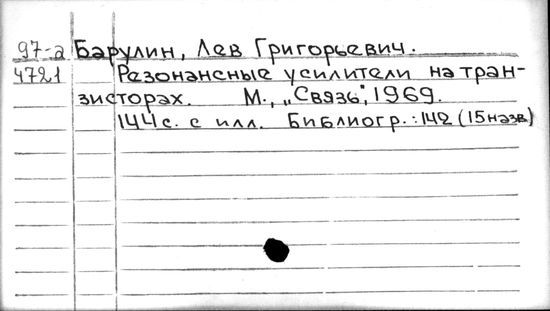 97-а Барулин, Лев Григорьевич.
4721 Резонансные усилители на тран-
зисторах. М., „Связь", 1969.
144 с. с илл. Библиогр.: 142 (15 назв)